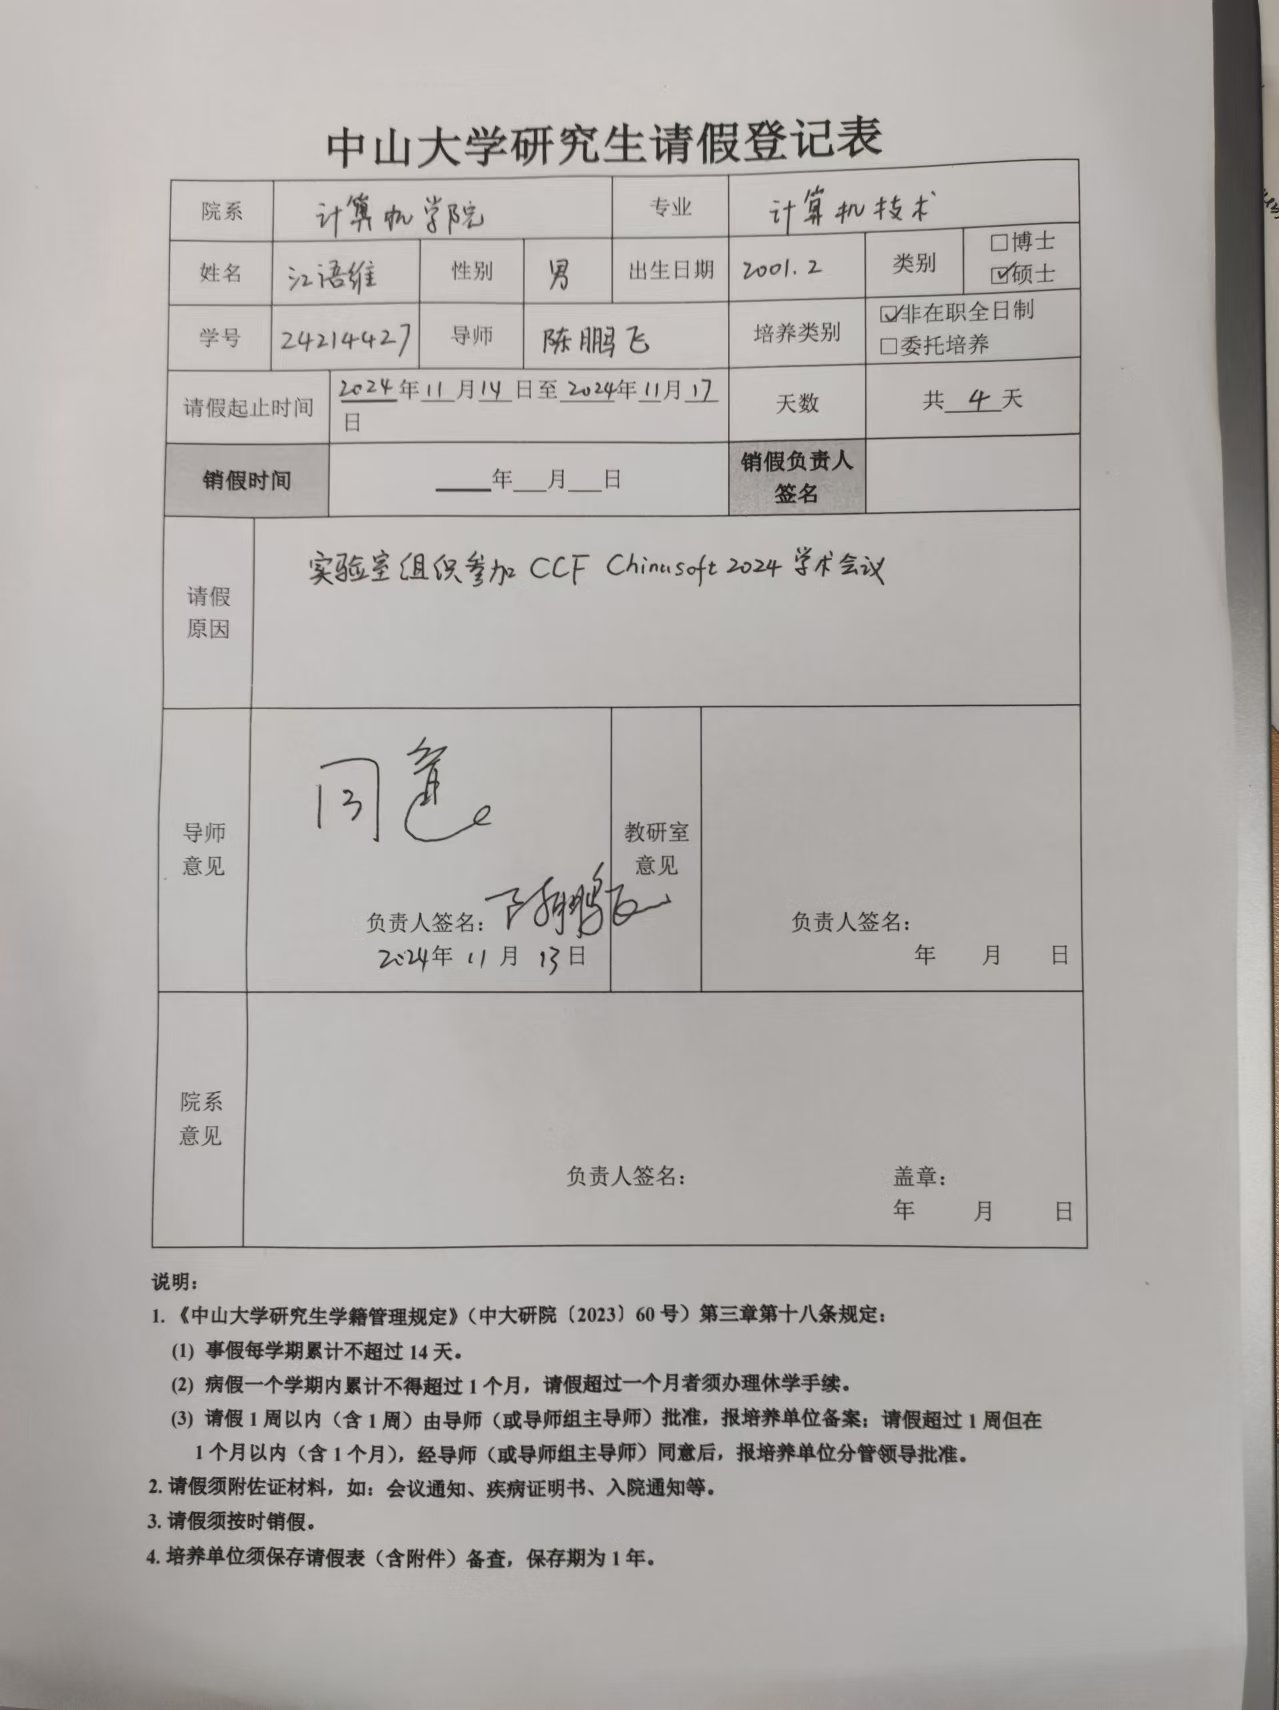 中山大学研究生请假登记表
院系 计算机学院 专业 计算机技术
姓名 江语维 性别 男 出生日期 2001.2 类别 □博士 ☑硕士
学号 24214427 导师 陈鹏飞 培养类别 ☑非在职全日制 □委托培养
请假起止时间 2024年11月14日至2024年11月17日 天数 共4天
销假时间 ____年___月___日 销假负责人签名
请假原因 实验室组织参加 CCF Chinasoft 2024 学术会议
导师意见 同意
负责人签名：陈鹏飞
2024年 11月 13日
教研室意见
负责人签名：
年 月 日
院系意见
负责人签名： 盖章：
年 月 日
说明：
1.《中山大学研究生学籍管理规定》（中大研院〔2023〕60号）第三章第十八条规定：
(1) 事假每学期累计不超过 14 天。
(2) 病假一个学期内累计不得超过 1 个月，请假超过一个月者须办理休学手续。
(3) 请假 1 周以内（含 1 周）由导师（或导师组主导师）批准，报培养单位备案；请假超过 1 周但在
1 个月以内（含 1 个月），经导师（或导师组主导师）同意后，报培养单位分管领导批准。
2. 请假须附佐证材料，如：会议通知、疾病证明书、入院通知等。
3. 请假须按时销假。
4. 培养单位须保存请假表（含附件）备查，保存期为 1 年。